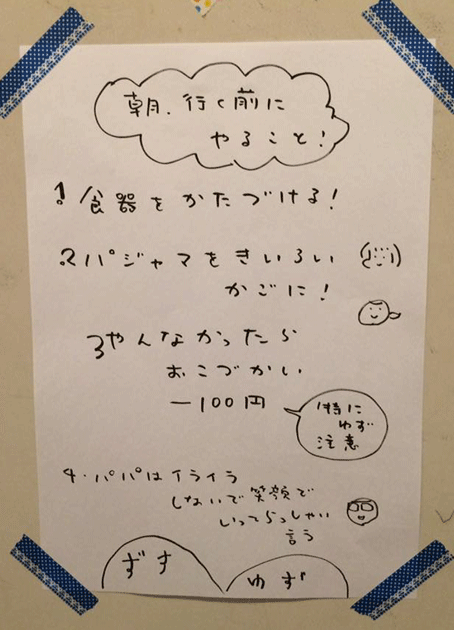 朝、行く前に
やること!
1. 食器をかたづける!
2. パジャマをきいろい
かごに!
3 やんなかったら
おこづかい
ー100円
特に
ゆず
注意
4. パパはイライラ
しないで笑顔で
いってらっしゃい
言う
すず
ゆず